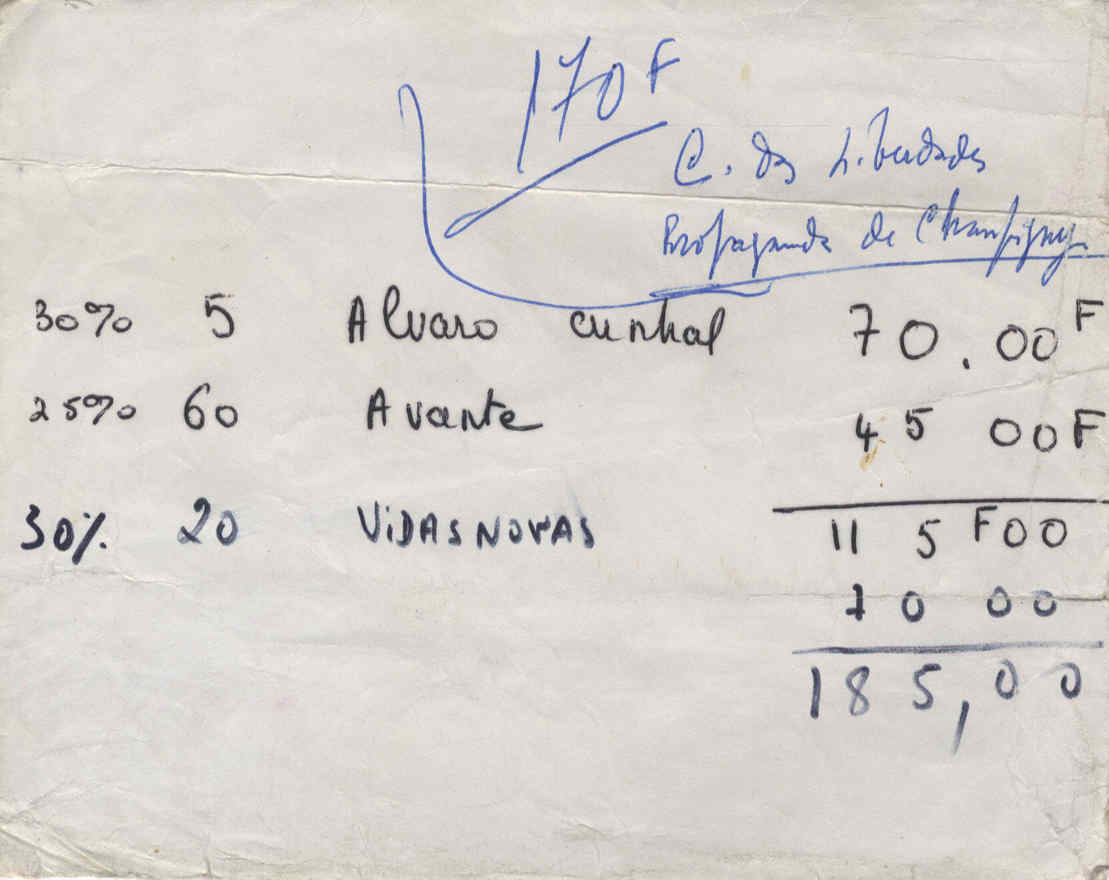 170 F
C. das Liberdades
Propaganda de Champigny
30% 5 Alvaro cunhal 70.00 F
25% 60 Avante 45 00 F
30% 20 ViDAS NOVAS 115 F 00
70 00
185,00